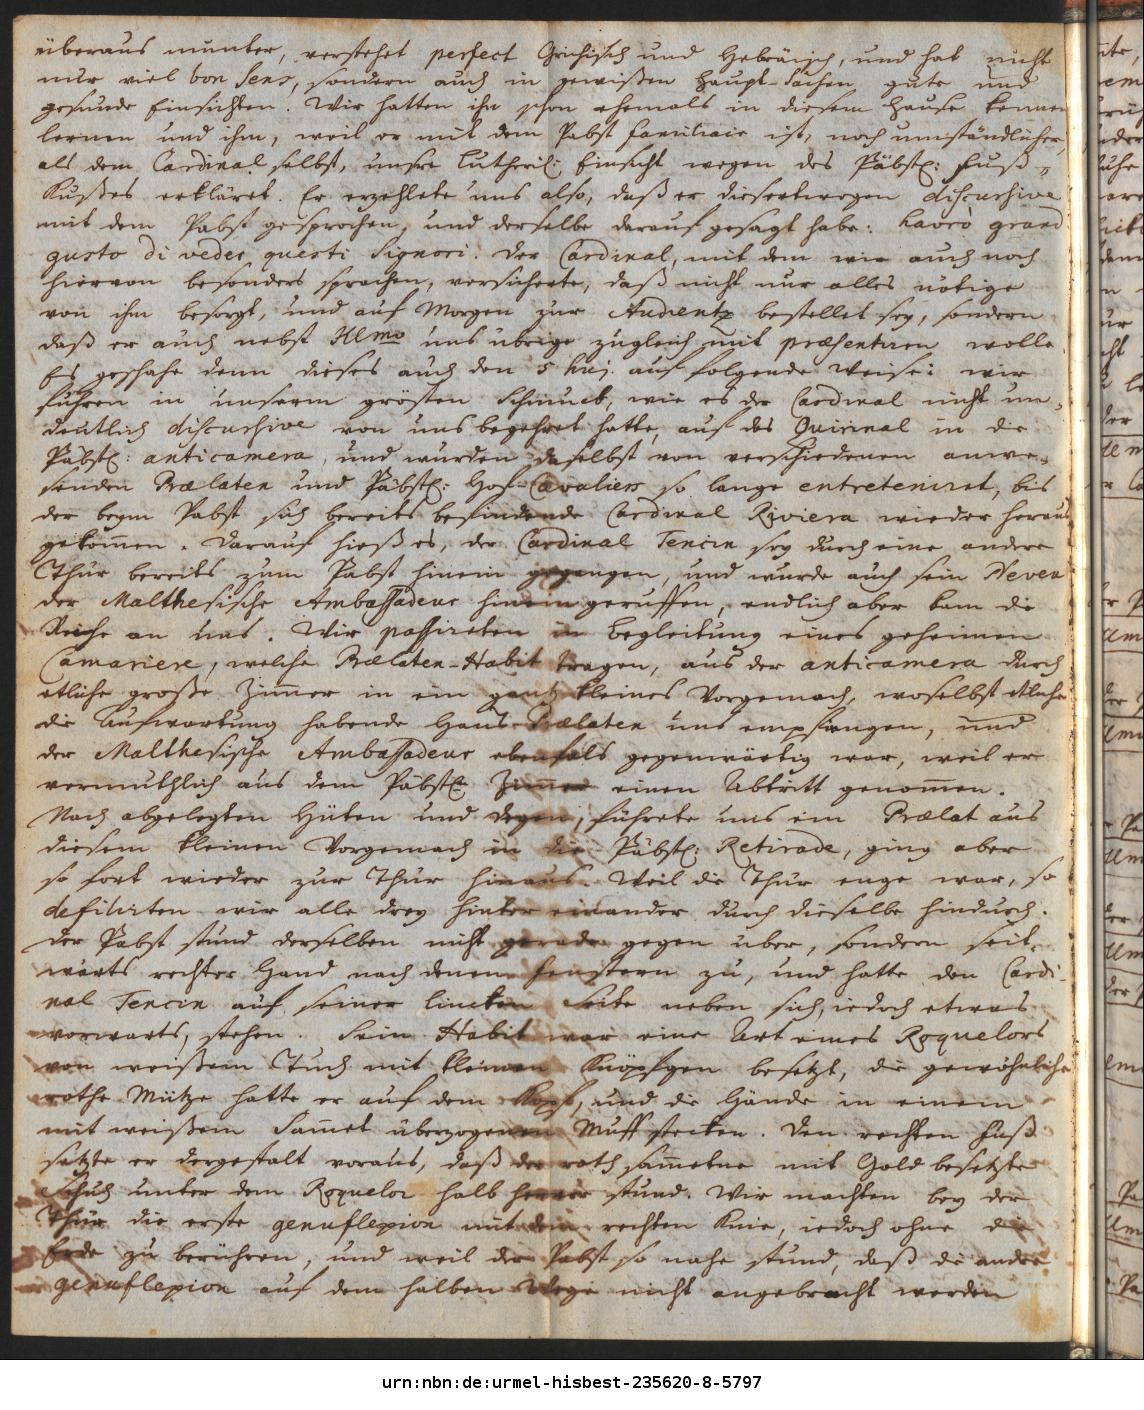 überaus munter, verstehet perfect Grichisch und Hebräisch, und hat nicht
nur viel bon Sens, sondern auch in gewißen Haupt-Sachen gute und
gesunde Einsichten. Wir hatten ihn schon ehemals in diesem Hause kennen
lernen und ihm, weil er mit dem Pabst familiair ist, noch umständlicher,
als dem Cardinal selbst, unsre Lutherisch: Einsicht wegen des Päbstl: Fuß-
Kußes erkläret. Er erzehlete uns also, daß er dieserwegen discursive
mit dem Pabst gesprochen, und derselbe darauf gesagt habe: havrò grand
gusto di veder questi Signori. Der Cardinal, mit dem wir auch noch
hiervon besonders sprachen, versicherte, daß nicht nur alles nötige
von ihm besorgt, und auf Morgen zur Audientz bestellet sey, sondern
daß er auch nebst Illmo uns übrige zugleich mit præsentiren wolle.
Es geschahe denn dieses auch den 5 huj. auf folgende Weise: wir
fuhren in unserm grösten Schmuck, wie es der Cardinal nicht un-
deutlich discursive von uns begehret hatte, auf das Quirinal in die
Päbstl: anticamera, und wurden daselbst von verschiedenen anwe-
senden Prælaten und Päbstl: Hof-Cavaliers so lange entreteniret, bis
der beym Pabst sich bereits befindende Cardinal Riviera wieder heraus
gekommen. Darauf hieß es, der Cardinal Tencin sey durch eine andere
Thür bereits zum Pabst hinein gegangen, und wurde auch sein Neveu
der Malthesische Ambassadeur hinein geruffen, endlich aber kam die
Reihe an uns. Wir passireten in Begleitung eines geheimen
Camariere, welche Prælaten-Habit tragen, aus der anticamera durch
etliche große Zimmer in ein gantz kleines Vorgemach, woselbst etliche
die Aufwartung habende Haus-Prælaten uns empfiengen, und
der Malthesische Ambassadeur ebenfals gegenwärtig war, weil er
vermuthlich aus dem Päbstl: Zimmer einen Abtritt genommen.
Nach abgelegten Hüten und Degen, führete uns ein Prælat aus
diesem kleinen Vorgemach in die Päbstl: Retirade, ging aber
so fort wieder zur Thür hinaus. Weil die Thür enge war, so
defilirten wir alle drey hinter einander durch dieselbe hindurch.
Der Pabst stund derselben nicht gerade gegen über, sondern seit-
wärts rechter Hand nach denen Fenstern zu, und hatte den Cardi-
nal Tencin auf seiner lincken Seite neben sich, iedoch etwas
vorwarts, stehen. Sein Habit war eine Art eines Roquelors
von weißem Tuch mit kleinen Knöpfgen besetzt, die gewöhnliche
rothe Mütze hatte er auf dem Kopf, und die Hände in einem
mit weißem Sammet überzogenen Muff stecken. Den rechten Fuß
setzte er dergestalt voraus, daß der roth sammetne mit Gold besetzte
Schuh unter dem Roquelor halb hervor stund. Wir machten bey der
Thür die erste genuflexion mit dem rechten Knie, iedoch ohne die
Erde zu berühren, und weil der Pabst so nahe stund, daß die andre
genuflexion auf dem halben Wege nicht angebracht werden
urn:nbn:de:urmel-hisbest-235620-8-5797